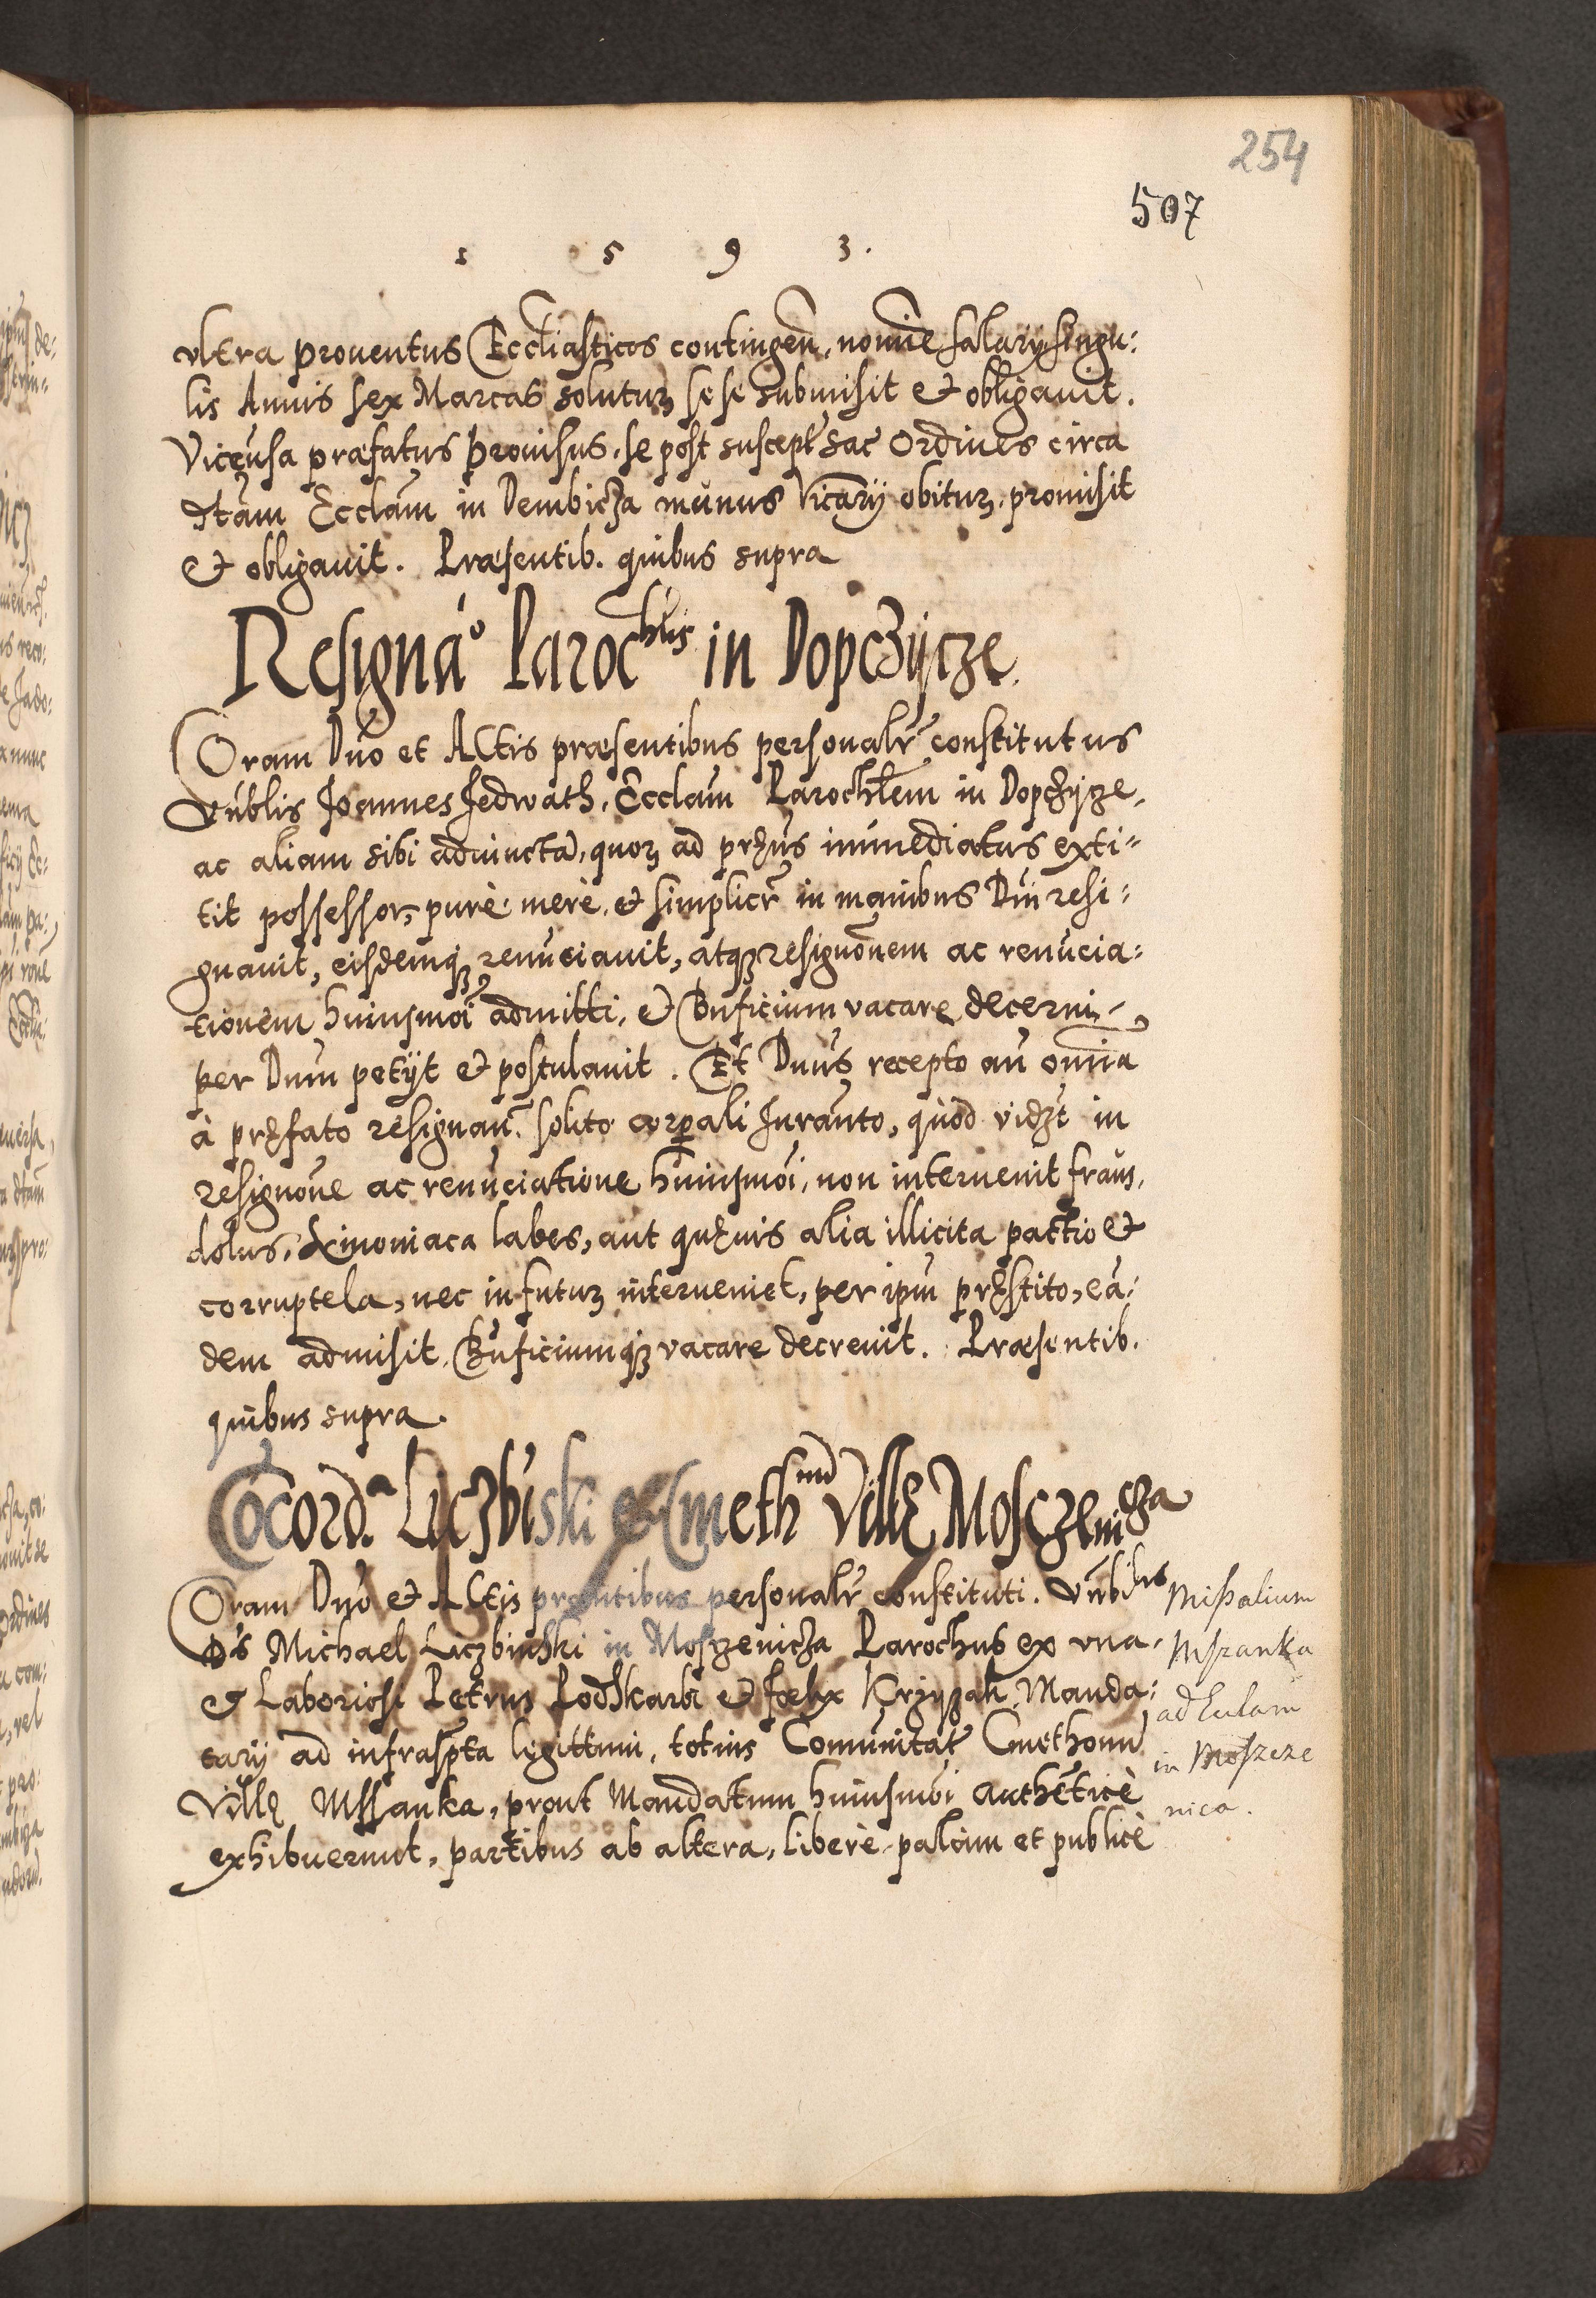 254
507
1 5 9 3.
vltra prouentus Eccliasticos contingeñ, nomine salary singu:
lis Annis sex Marcas solutuꝝ sese submisit et obligauit.
Viceũsa præfatus Prouisus, se post suscept sac Ordines circa
dtam Ecclam in Dembicza munus Vicarÿ obituꝝ, promisit
et obligauit. Præsentib. quibus supra
Resignao Parochlis in Dopczÿcze.
Coram Dño et Actis præsentibus personalr constitutus
Vñblis Joannes Jedwath, Ecclam Parochlem in Dopczycze,
ac aliam sibi adiuncta, quoꝝ ad pręns immediatus exti=
tit possessor, purè, merè, et simplicr in manibus Dñi resi=
gnauit, eisdemqꝫ renũciauit, atqꝫ resignonem ac renũcia:
tionem huiusmoi admitti, et Bnficium vacare decerni
per Dnm petÿt et postulauit. Et Dnus recepto añ omnia
à pręfato resignañ. solito corpali Juranto, quòd videt in
resignone ac renũciatione huiusmoi, non interuenit fraus,
dolus, Simoniaca labes, aut quęuis alia illicita pactio et
corruptela, nec in futuꝝ interueniet, per ipm pręstito, eã:
dem admisit, Bnficiumqꝫ vacare decreuit. Præsentib.
quibus supra.
Cõcorda Liczbiski et Cmethnu Villę Mosczenicza
Coram Dño et Actis pręntibus personalr constituti. Vnbilis
Ds Michael Liczbinski in Mosczenicza Parochus ex vna,
et Laboriosi Petrus Podskarbi et Fœlix Krzyzak Manda:
tarÿ ad infraspta legittimi, totius Comunitat Cmethonu
Villę Mssanka, prout Mandatum huiusmoi authẽticè
exhibuerunt, partibus ab altera, liberè palam et publicè
Missalium
Mszanka
ad Eclam
in Moszcze
nica.